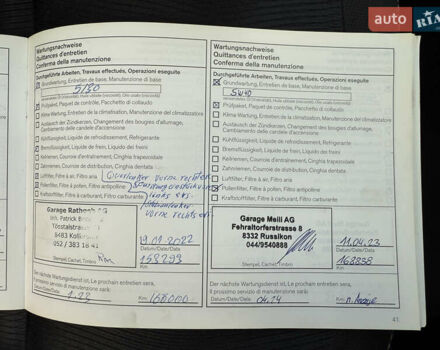 auto RIA
Wartungsnachweise
Quittances d'entretien
Conferma della manutenzione
Durchgeführte Arbeiten, Travaux effectués, Operazioni eseguite
Grundwartung, Entretien de base, Manutenzione di base
5/30
Prüfpaket, Paquet de contrôle, Pacchetto di collaudo
Klima Wartung, Entretien du climatisation, Manutenzione del climatizzatore
Austausch der Zündkerzen, Changement des bougies d'allumage,
Cambiamento delle candele d'accensione
Kühlflüssigkeit, Liquide de refroidissement, Refrigerante
Bremsflüssigkeit, Liquide de frein, Liquido dei freni
Keilriemen, Courroies d'entraînement, Cinghia trapezoidale
Zahnriemen, Courroies de distribution, Cinghia dentata
Luftfilter, Filtre à air, Filtro aria
Pollenfilter, Filtre à pollen, Filtro antipolline
Kraftstofffilter, Filtre à carburant, Filtro carburante
Querlenker vorne rechts
vorne rechts ers.
Garage Rathgeb AG
Inh. Patrick
Tösstalstrasse
8483 Kollbrunn
052 / 383 18 41
Stempel, Cachet, Timbro
19.01.2022
Datum/Date/Data
158293
Km
Der nächste Wartungsdienst ist, Le prochain entretien sera,
Il prossimo servizio di manutenzione sarà:
1.23
Datum/Date/Data
Km
Wartungsnachweise
Quittances d'entretien
Conferma della manutenzione
Durchgeführte Arbeiten, Travaux effectués, Operazioni eseguite
Grundwartung, Entretien de base, Manutenzione di base
5W40
Prüfpaket, Paquet de contrôle, Pacchetto di collaudo
Klima Wartung, Entretien du climatisation, Manutenzione del climatizzatore
Austausch der Zündkerzen, Changement des bougies d'allumage,
Cambiamento delle candele d'accensione
Kühlflüssigkeit, Liquide de refroidissement, Refrigerante
Bremsflüssigkeit, Liquide de frein, Liquido dei freni
Keilriemen, Courroies d'entraînement, Cinghia trapezoidale
Zahnriemen, Courroies de distribution, Cinghia dentata
Luftfilter, Filtre à air, Filtro aria
Pollenfilter, Filtre à pollen, Filtro antipolline
Kraftstofffilter, Filtre à carburant, Filtro carburante
Garage Meili AG
Fehraltorferstrasse 8
8332 Russikon
044/9540888
Stempel, Cachet, Timbro
11.04.23
Datum/Date/Data
168838
Km
Der nächste Wartungsdienst ist, Le prochain entretien sera,
Il prossimo servizio di manutenzione sarà:
04.24
Datum/Date/Data
Km
41